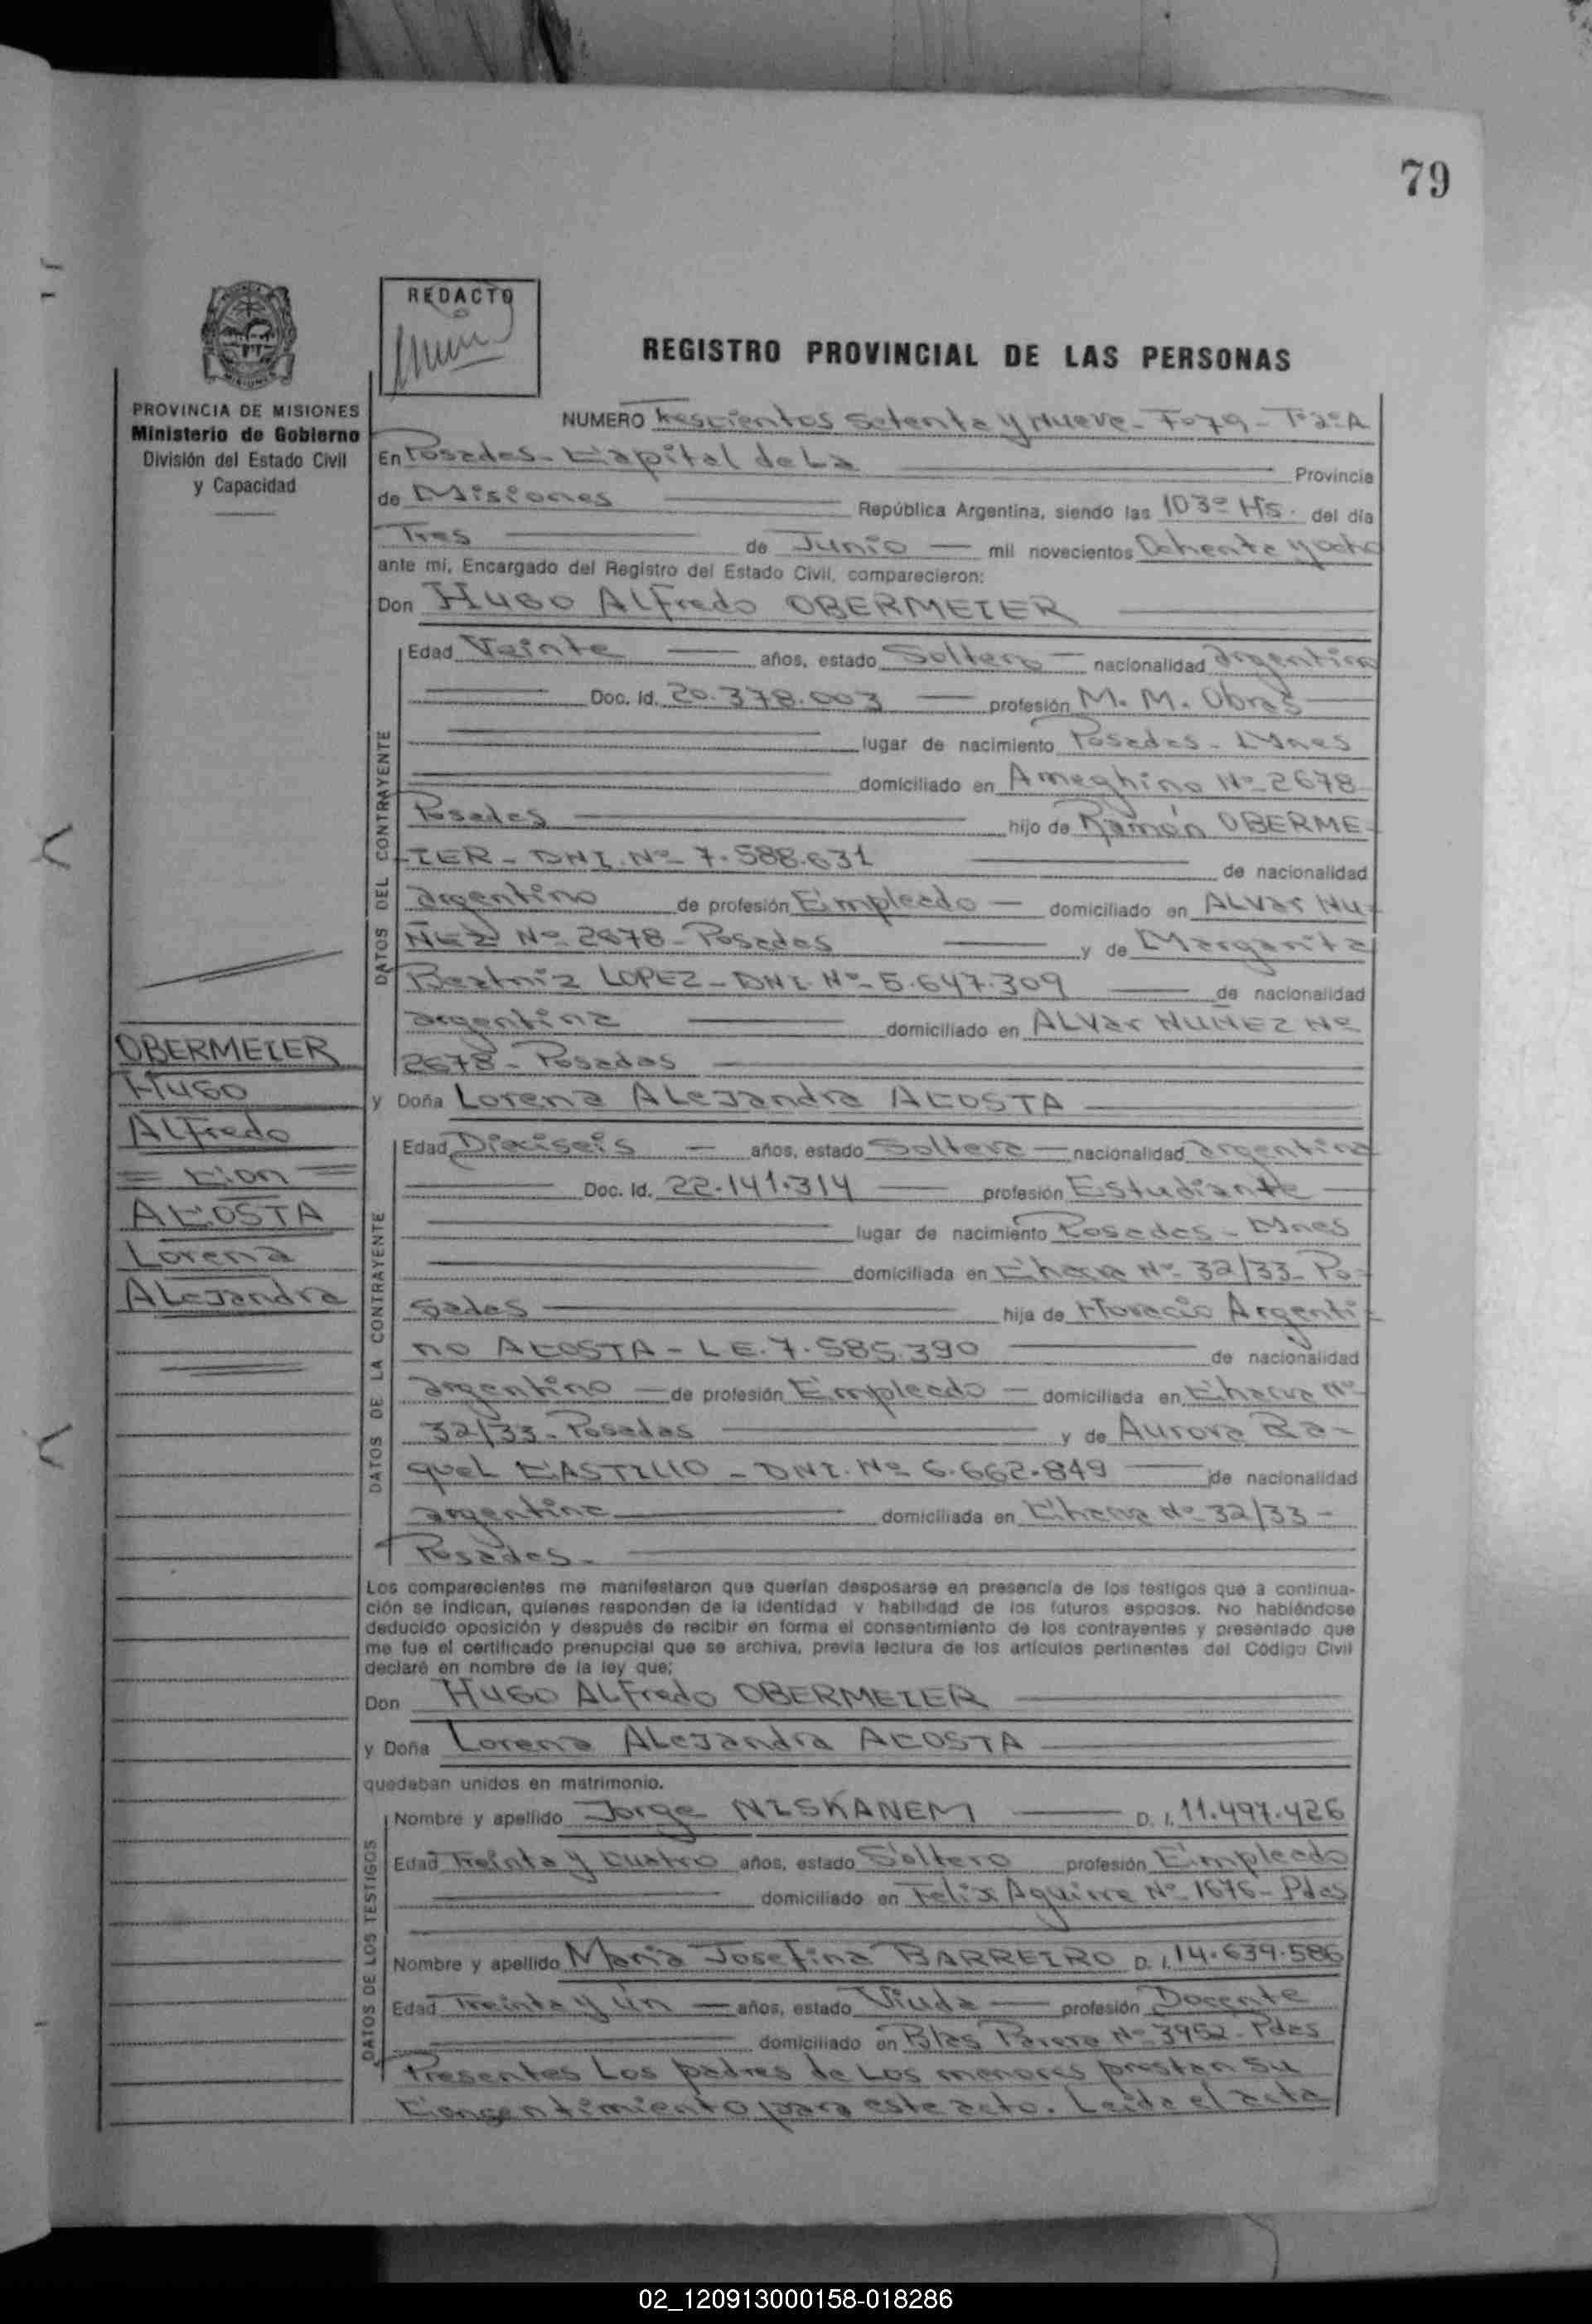 79
REDACTO
REGISTRO PROVINCIAL DE LAS PERSONAS
PROVINCIA DE MISIONES
Ministerio de Gobierno
División del Estado Civil
y Capacidad
NUMERO trescientos setenta y nueve - Fº 79 - Tº 2º A
En Posadas - Capital de La Provincia
de Misiones República Argentina, siendo las 10 30 Hs. del día
Tres de Junio mil novecientos Ochenta y ocho
ante mí, Encargado del Registro del Estado Civil, comparecieron:
Don HUGO ALfredo OBERMEIER
DATOS DEL CONTRAYENTE
Edad Veinte años, estado Soltero nacionalidad argentina
Doc. Id. 20.378.003 profesión M. M. Obras
lugar de nacimiento Posadas - Mnes
domiciliado en Ameghino Nº 2678
Posadas hijo de Ramón OBERME-
IER - DNI. Nº 7.588.631 de nacionalidad
argentino de profesión Empleado domiciliado en ALVar NU-
ÑEZ Nº 2678 - Posadas y de Margarita
Beatriz LOPEZ - DNI. Nº 5.647.309 de nacionalidad
argentina domiciliado en ALVar NUÑEZ Nº
2678 - Posadas
OBERMEIER
HUGO
ALfredo
= Con =
ACOSTA
Lorena
ALejandra
y Doña Lorena ALejandra ACOSTA
DATOS DE LA CONTRAYENTE
Edad Dieciseis años, estado Soltera nacionalidad argentina
Doc. Id. 22.141.314 profesión Estudiante
lugar de nacimiento Posadas - Mnes
domiciliada en Chacra Nº 32/33 - Po-
sadas hija de Horacio Argenti-
no ACOSTA - L.E. 7.585.390 de nacionalidad
argentino de profesión Empleado domiciliada en Chacra Nº
32/33 - Posadas y de Aurora Ra-
quel CASTILLO - DNI. Nº 6.662.849 de nacionalidad
argentina domiciliada en Chacra Nº 32/33 -
Posadas.
Los comparecientes me manifestaron que querían desposarse en presencia de los testigos que a continua-
ción se indican, quienes responden de la identidad y habilidad de los futuros esposos. No habiéndose
deducido oposición y después de recibir en forma el consentimiento de los contrayentes y presentado que
me fue el certificado prenupcial que se archiva, previa lectura de los artículos pertinentes del Código Civil
declaré en nombre de la ley que:
Don HUGO ALfredo OBERMEIER
y Doña Lorena ALejandra ACOSTA
quedaban unidos en matrimonio.
DATOS DE LOS TESTIGOS
Nombre y apellido Jorge NISKANEM D. I. 11.497.426
Edad treinta y cuatro años, estado Soltero profesión Empleado
domiciliado en Felix Aguirre Nº 1676 - Pdas
Nombre y apellido María Josefina BARREIRO D. I. 14.639.586
Edad treinta y un años, estado Viuda profesión Docente
domiciliado en Blas Parera Nº 3952 - Pdas
Presentes Los padres de Los menores prestan su
Consentimiento para este acto. Leída el acta
02_120913000158-018286